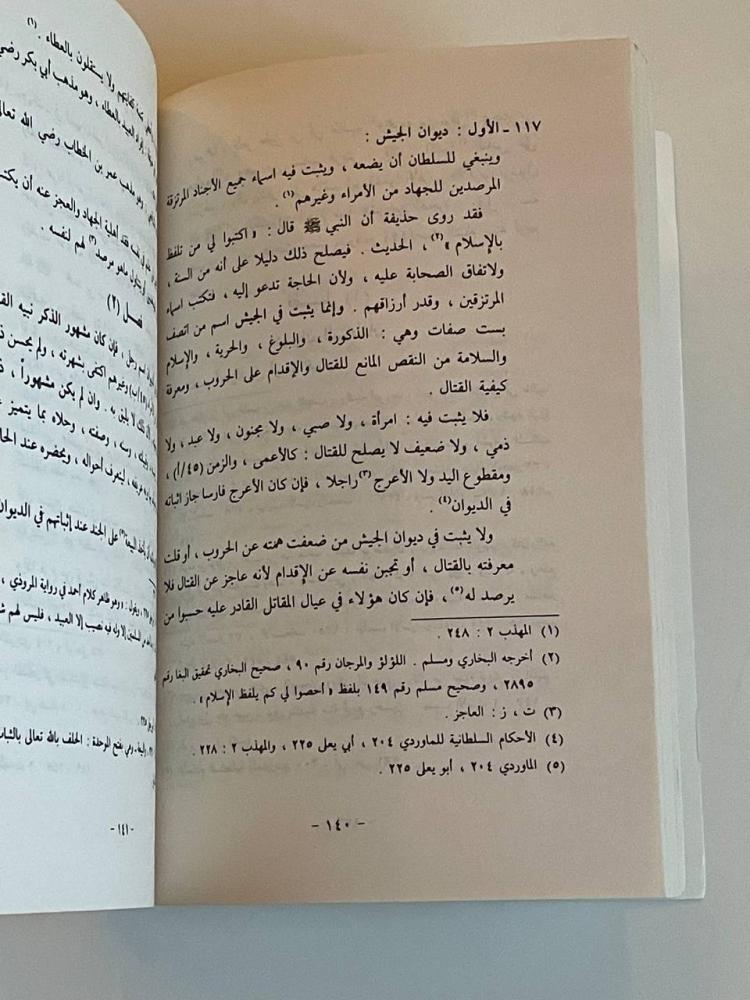 ١١٧ - الأول : ديوان الجيش :
وينبغي للسلطان أن يضعه ، ويثبت فيه اسماء جميع الأجناد المرتزقة
المرصدين للجهاد من الأمراء وغيرهم(١) .
فقد روى حذيفة أن النبي ﷺ قال : « اكتبوا لي من تلفظ
بالإسلام »(٢) ، الحديث . فيصلح ذلك دليلا على أنه من السنة ،
ولاتفاق الصحابة عليه ، ولأن الحاجة تدعو إليه ، فتكتب اسماء
المرتزقين ، وقدر أرزاقهم . وإنما يثبت في الجيش اسم من اتصف
بست صفات وهي : الذكورة ، والبلوغ ، والحرية ، والإسلام
والسلامة من النقص المانع للقتال والإقدام على الحروب ، ومعرفة
كيفية القتال .
فلا يثبت فيه : امرأة ، ولا صبي ، ولا مجنون ، ولا عبد ، ولا
ذمي ، ولا ضعيف لا يصلح للقتال : كالأعمى ، والزمن (٤٥/أ) ،
ومقطوع اليد ولا الأعرج(٣) راجلا ، فإن كان الأعرج فارسا جاز اثباته
في الديوان(٤) .
ولا يثبت في ديوان الجيش من ضعفت همته عن الحروب ، أو قلت
معرفته بالقتال ، أو تجبن نفسه عن الإقدام لأنه عاجز عن القتال فلا
يرصد له(٥) ، فإن كان هؤلاء في عيال المقاتل القادر عليه حسبوا من
(١) المهذب ٢ : ٢٤٨ .
(٢) أخرجه البخاري ومسلم . اللؤلؤ والمرجان رقم ٩٠ ، صحيح البخاري تحقيق البغا رقم
٢٨٩٥ ، وصحيح مسلم رقم ١٤٩ بلفظ « أحصوا لي كم يلفظ الإسلام » .
(٣) ت ، ز : العاجز .
(٤) الأحكام السلطانية للماوردي ٢٠٤ ، أبي يعلى ٢٢٥ ، والمهذب ٢ : ٢٢٨ .
(٥) الماوردي ٢٠٤ ، أبو يعلى ٢٢٥ .
- ١٤٠ -
ولا يستقلون بالعطاء . (١)
بالعطاء ، وهو مذهب أبي بكر رضي
مذهب عمر بن الخطاب رضي الله تعالى
فقد أهلية الجهاد والعجز عنه أن يكتب
ماهو مرصد(٣) لهم لنفسه .
فصل (٢)
اسم رجل ، فإن كان مشهور الذكر نبيه
وغيرهم اكتفى بشهرته ، ولم يحسن
لا يليق به . وان لم يكن مشهوراً ،
وسنه ، وصفته ، وحلاه بما يتميز
ليعرف أحواله ، ويحضره عند
على الجند عند إثباتهم في الديوان
وهو ظاهر كلام أحمد في رواية المروذي ،
إلا وله فيه نصيب إلا العبيد ، فليس لهم
بفتح الموحدة : الحلف بالله تعالى
- ١٤١ -